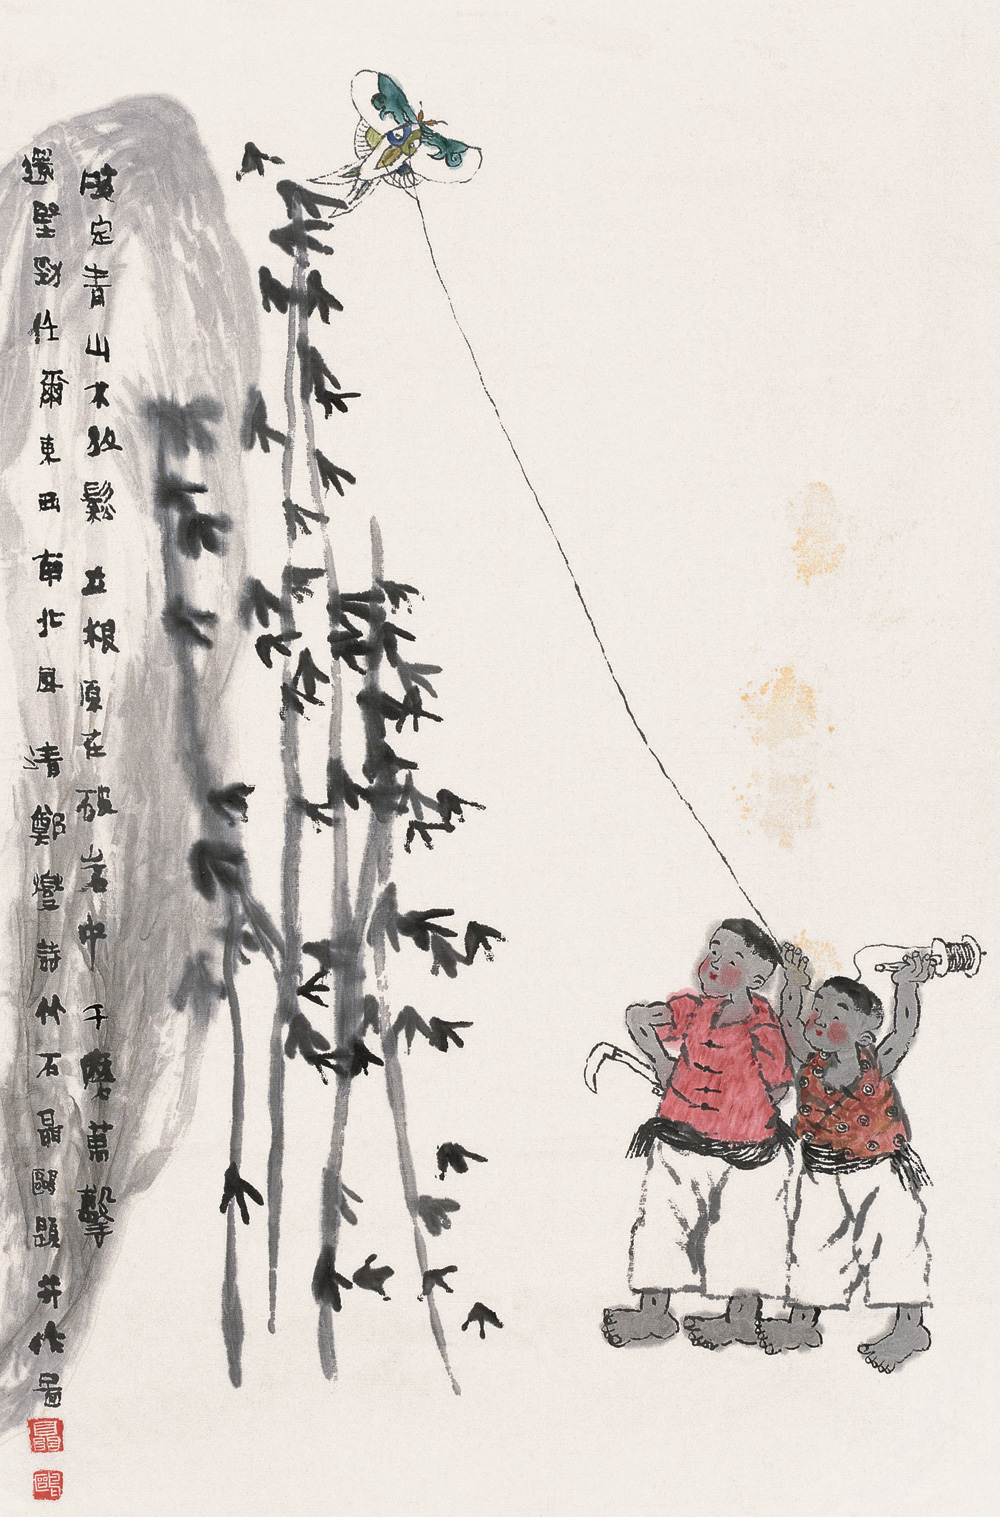 咬定青山不放鬆立根原在破岩中千磨萬擊
還堅勁任爾東西南北風清鄭燮詩竹石聶鷗題并作圖
聶
鷗